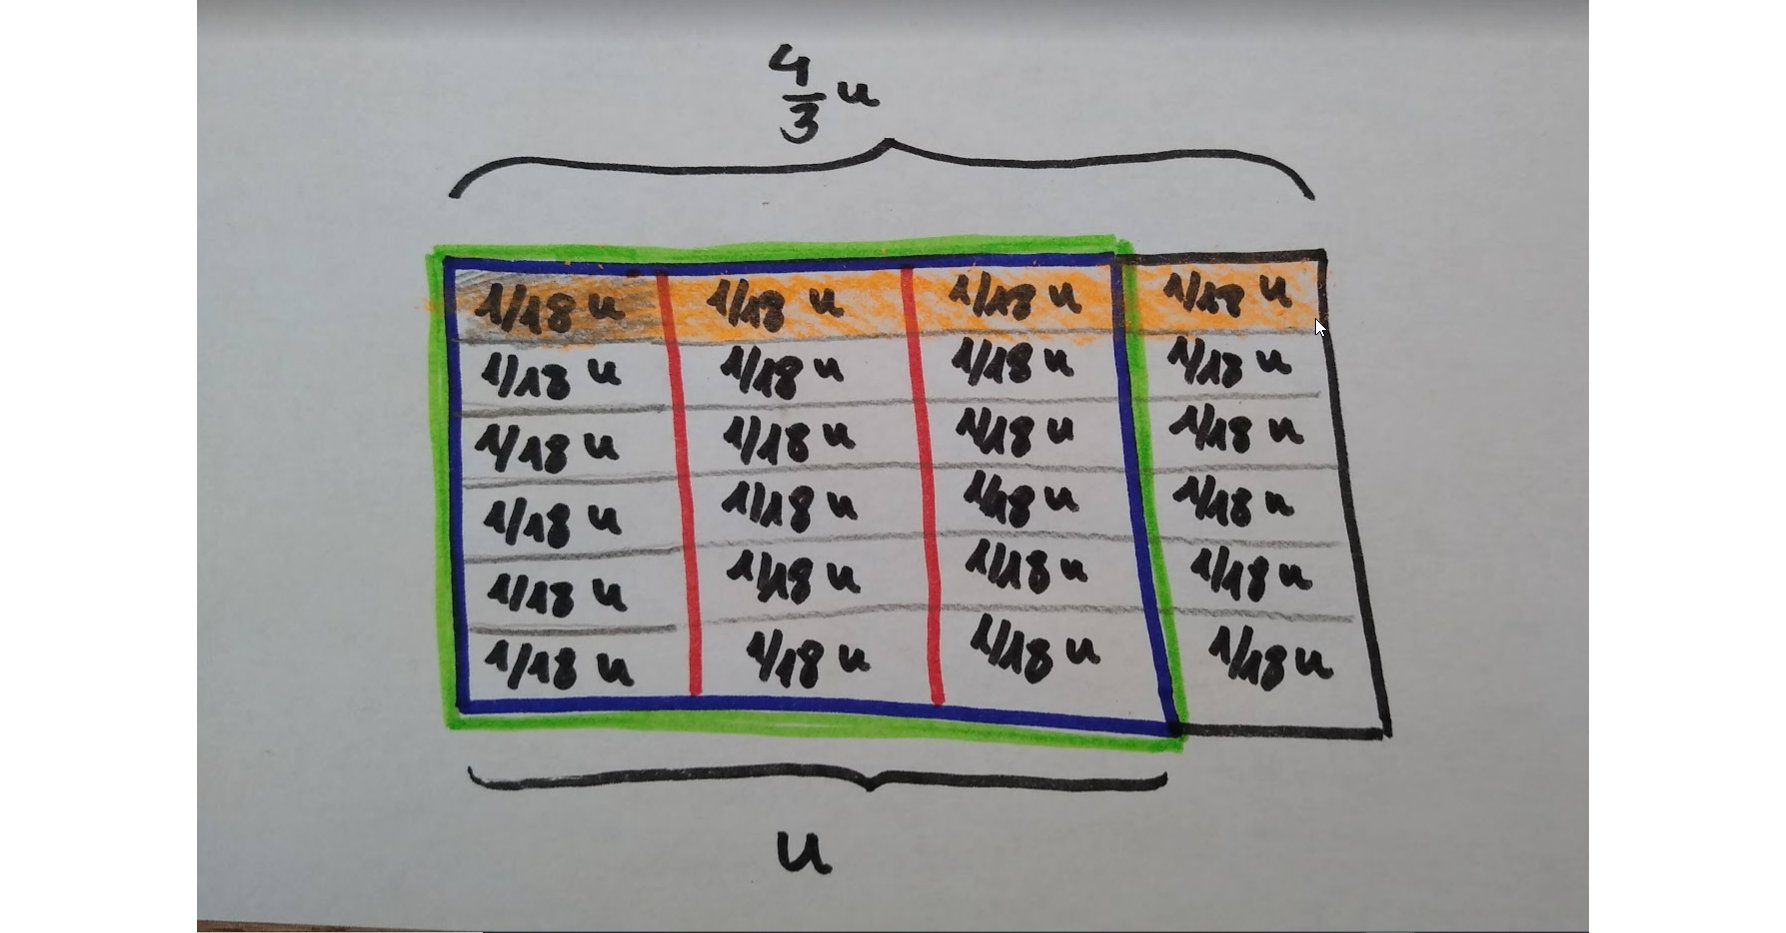 4/3 u
1/18 u 1/18 u 1/18 u 1/18 u
1/18 u 1/18 u 1/18 u 1/18 u
1/18 u 1/18 u 1/18 u 1/18 u
1/18 u 1/18 u 1/18 u 1/18 u
1/18 u 1/18 u 1/18 u 1/18 u
1/18 u 1/18 u 1/18 u 1/18 u
u